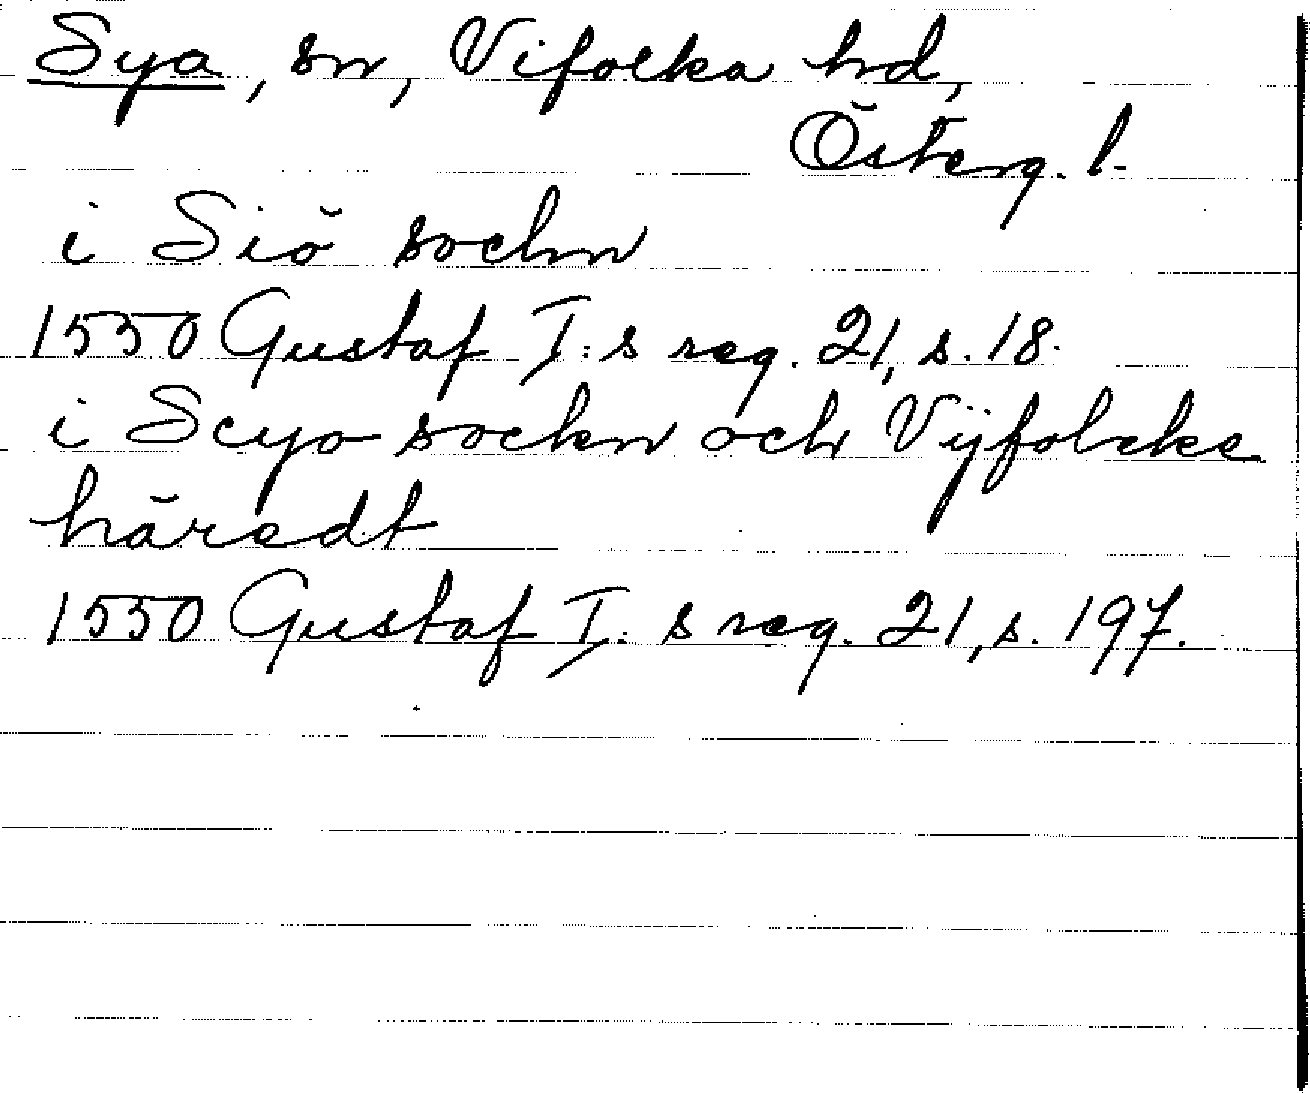 Sya, sn, Vifolka hd,
Österg. l.
i Siö sochn
1550 Gustaf I:s reg. 21, s. 18.
i Scyo sockn och Vijfolcke
häredt
1550 Gustaf I:s reg. 21, s. 197.